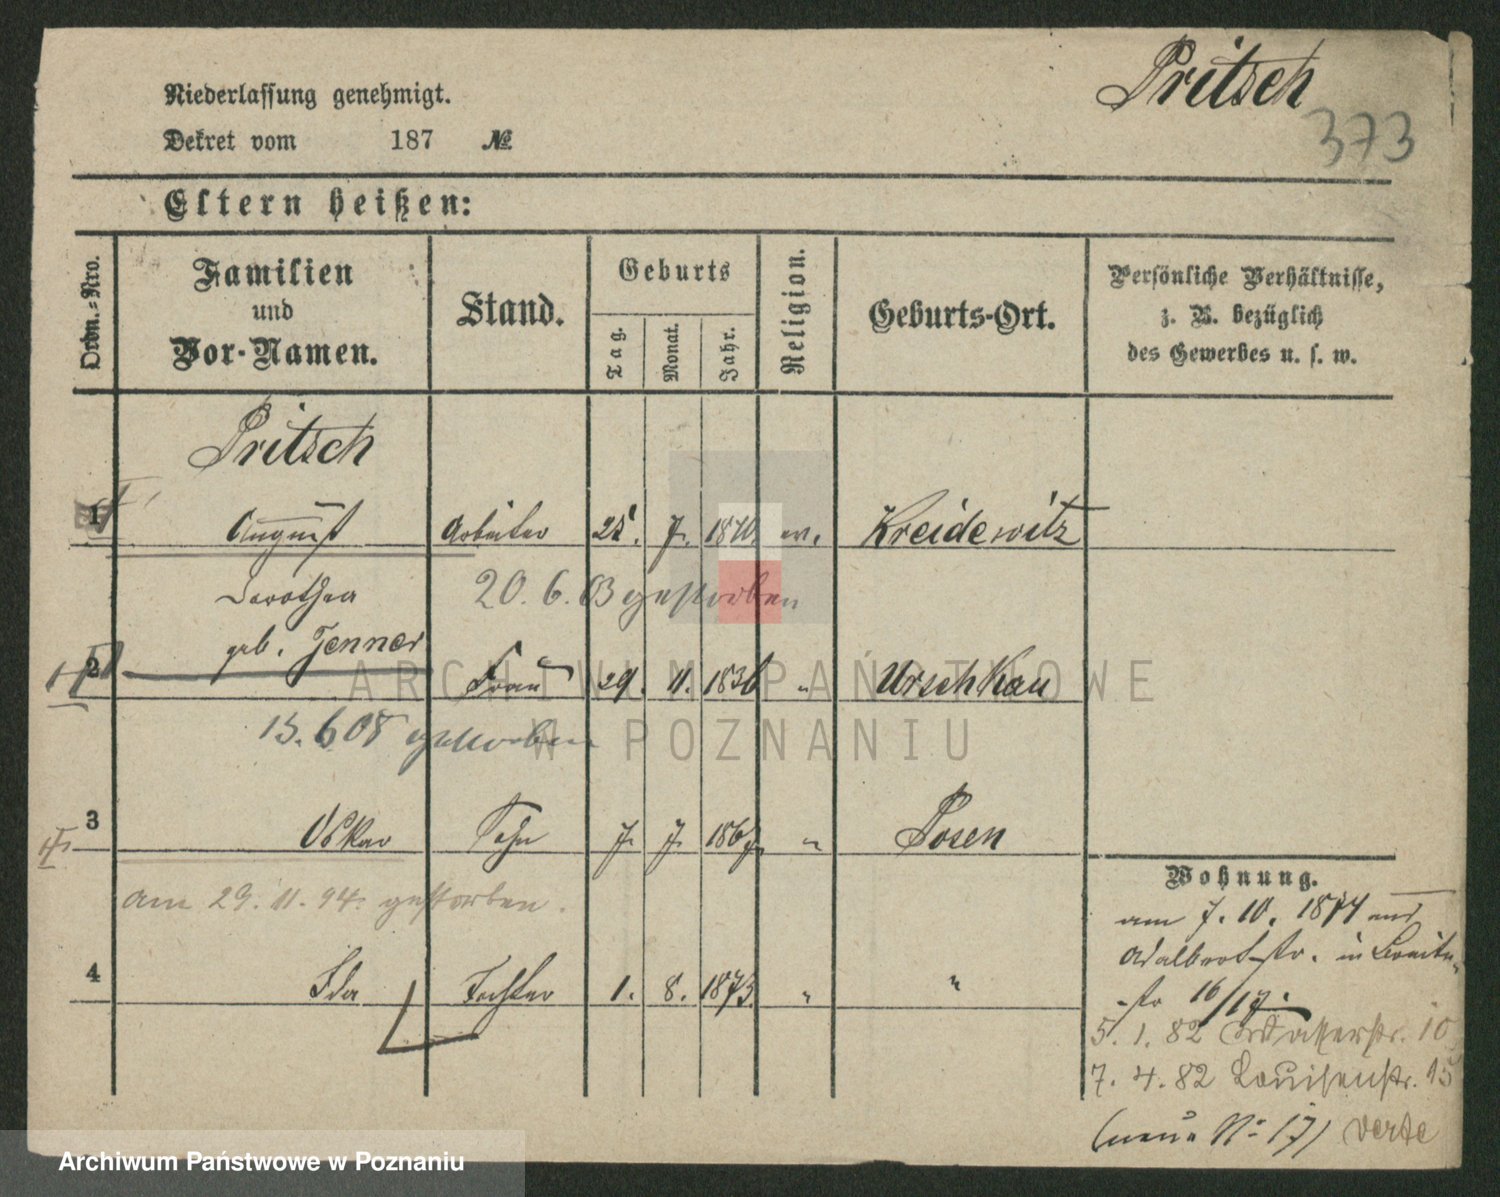 Pritsch
373
Niederlassung genehmigt.
Dekret vom 187 №
Eltern heißen:
Ordn.-Nro.
Familien und Vor-Namen.
Stand.
Geburts
Tag.
Monat.
Jahr.
Religion.
Geburts-Ort.
Persönliche Verhältnisse,
z. B. bezüglich
des Gewerbes u. s. w.
Pritsch
1 August Arbeiter 7. ev. Kreidewitz
Dorothea 20. 6. 03 gestorben
geb. Jenner
2 Frau 29. 11. 1836 " Urschkau
gestorben
3 Oskar Sohn 7. 7. 1867. " Posen
am 29. 11. 94. gestorben.
4 Ida Tochter 1. 8. 1873. " "
Wohnung.
am 7. 10. 1874 aus
Adalbertstr. in Breite-
str 16/17.
5. 1. 82 10
7. 4. 82 Louisenstr. 15
(neue No 17) verte
ARCHIWUM PAŃSTWOWE
W POZNANIU
Archiwum Państwowe w Poznaniu